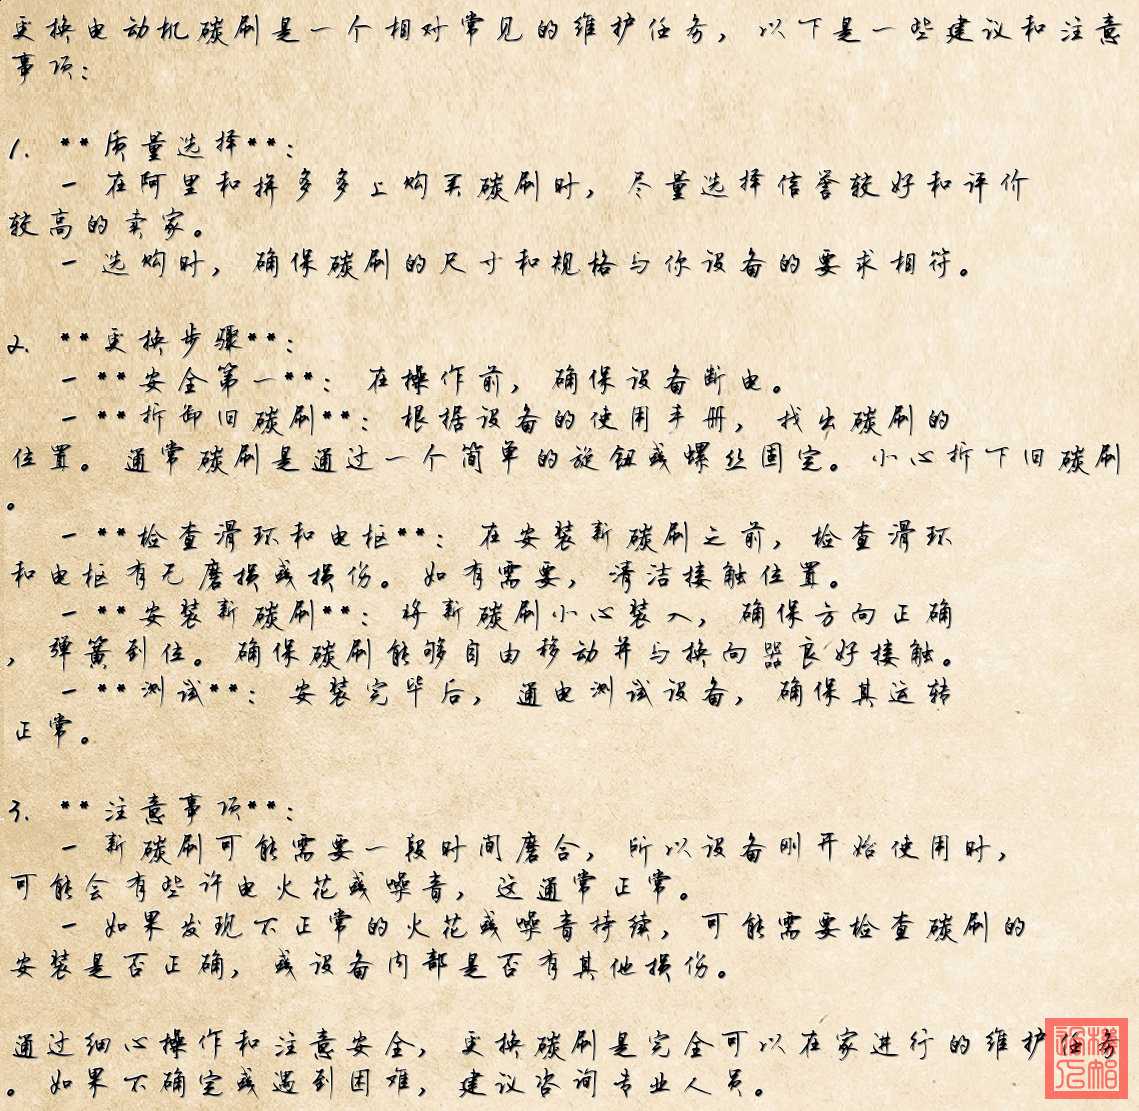 更换电动机碳刷是一个相对常见的维护任务，以下是一些建议和注意
事项：
1. **质量选择**：
- 在阿里和拼多多上购买碳刷时，尽量选择信誉较好和评价
较高的卖家。
- 选购时，确保碳刷的尺寸和规格与你设备的要求相符。
2. **更换步骤**：
- **安全第一**：在操作前，确保设备断电。
- **拆卸旧碳刷**：根据设备的使用手册，找出碳刷的
位置。通常碳刷是通过一个简单的旋钮或螺丝固定。小心拆下旧碳刷
。
- **检查滑环和电枢**：在安装新碳刷之前，检查滑环
和电枢有无磨损或损伤。如有需要，清洁接触位置。
- **安装新碳刷**：将新碳刷小心装入，确保方向正确
，弹簧到位。确保碳刷能够自由移动并与换向器良好接触。
- **测试**：安装完毕后，通电测试设备，确保其运转
正常。
3. **注意事项**：
- 新碳刷可能需要一段时间磨合，所以设备刚开始使用时，
可能会有些许电火花或噪音，这通常正常。
- 如果发现不正常的火花或噪音持续，可能需要检查碳刷的
安装是否正确，或设备内部是否有其他损伤。
通过细心操作和注意安全，更换碳刷是完全可以在家进行的维护任务
。如果不确定或遇到困难，建议咨询专业人员。